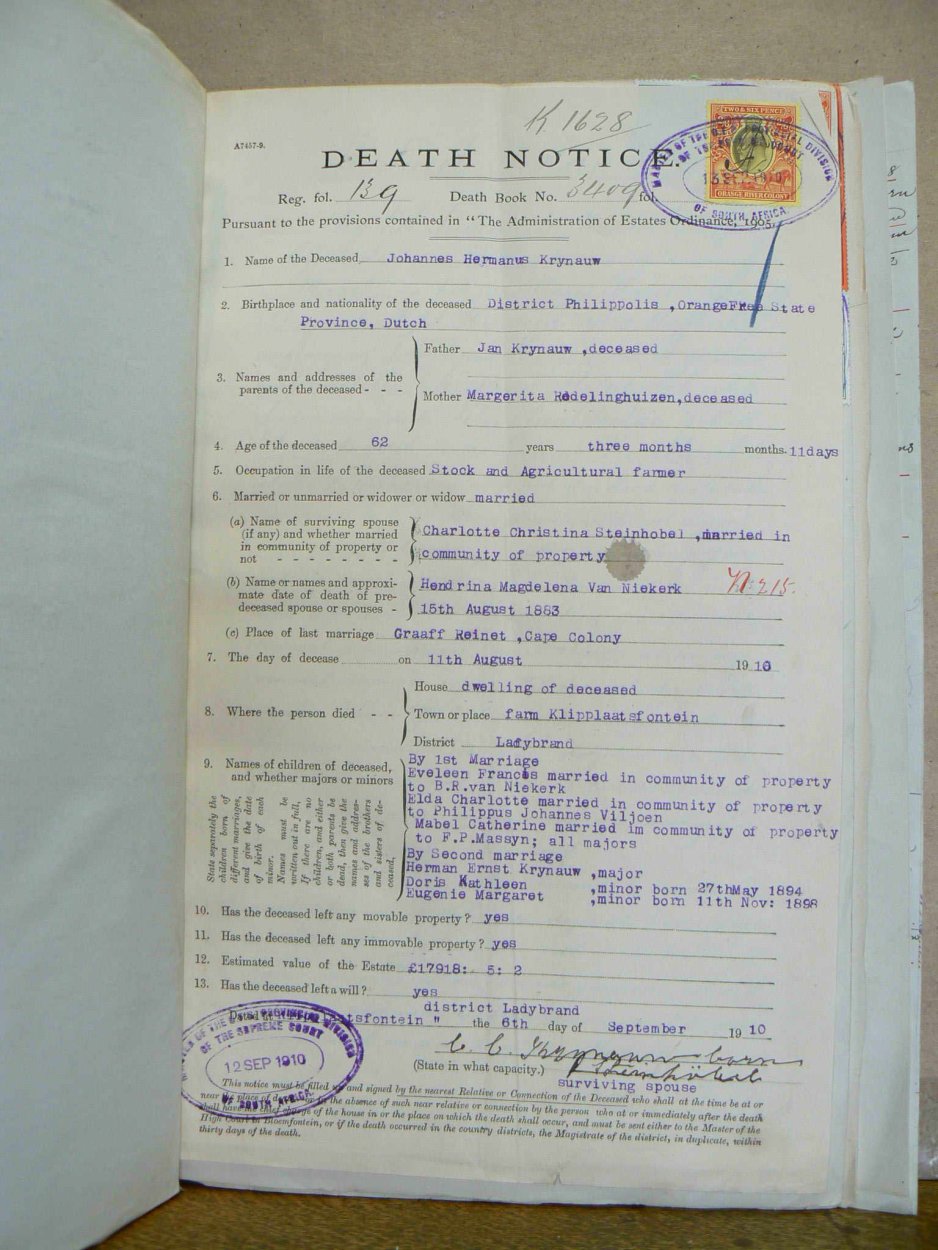 K 1628
A7457-9.
DEATH NOTICE.
TWO & SIX PENCE
ORANGE RIVER COLONY
OF SOUTH AFRICA.
Reg. fol. 139 Death Book No. 3409 fol.
Pursuant to the provisions contained in "The Administration of Estates Ordinance, 1905,
1. Name of the Deceased Johannes Hermanus Krynauw
2. Birthplace and nationality of the deceased District Philippolis ,OrangeFree State
Province, Dutch
3. Names and addresses of the parents of the deceased - - -
Father Jan Krynauw ,deceased
Mother Margerita Redelinghuizen,deceased
4. Age of the deceased 62 years three months months. 11days
5. Occupation in life of the deceased Stock and Agricultural farmer
6. Married or unmarried or widower or widow married
(a) Name of surviving spouse
(if any) and whether married
in community of property or
not - - - - - - - -
Charlotte Christina Steinhobel ,married in
community of property
(b) Name or names and approxi-
mate date of death of pre-
deceased spouse or spouses -
Hendrina Magdelena Van Niekerk
15th August 1883
No 215.
(c) Place of last marriage Graaff Reinet ,Cape Colony
7. The day of decease on 11th August 1910
8. Where the person died - -
House dwelling of deceased
Town or place farm Klipplaatsfontein
District Ladybrand
9. Names of children of deceased,
and whether majors or minors
State separately the
children born of
different marriages,
and give the date
of birth of each
minor.
Names must be
written out in full,
If there are no
children, and either
or both parents be
dead, then give the
names and addres-
ses of the brothers
and sisters of de-
ceased,
By 1st Marriage
Eveleen Francis married in community of property
to B.R.van Niekerk
Elda Charlotte married in community of property
to Philippus Johannes Viljoen
Mabel Catherine married im community of property
to F.P.Massyn; all majors
By Second marriage
Herman Ernst Krynauw ,major
Doris Kathleen ,minor born 27thMay 1894
Eugenie Margaret ,minor born 11th Nov: 1898
10. Has the deceased left any movable property? yes
11. Has the deceased left any immovable property? yes
12. Estimated value of the Estate £17918: 5: 2
13. Has the deceased left a will? yes
district Ladybrand
Dated at atsfontein " the 6th day of September 1910
OF THE SUPREME COURT
12 SEP 1910
OF SOUTH AFRICA.
C. C. Krynauw born
Steinhöbel
(State in what capacity.)
surviving spouse
This notice must be filled up and signed by the nearest Relative or Connection of the Deceased who shall at the time be at or
near the place of death or in the absence of such near relative or connection by the person who at or immediately after the death
shall have the chief charge of the house in or the place on which the death shall occur, and must be sent either to the Master of the
High Court in Bloemfontein, or if the death occurred in the country districts, the Magistrate of the district, in duplicate, within
thirty days of the death.